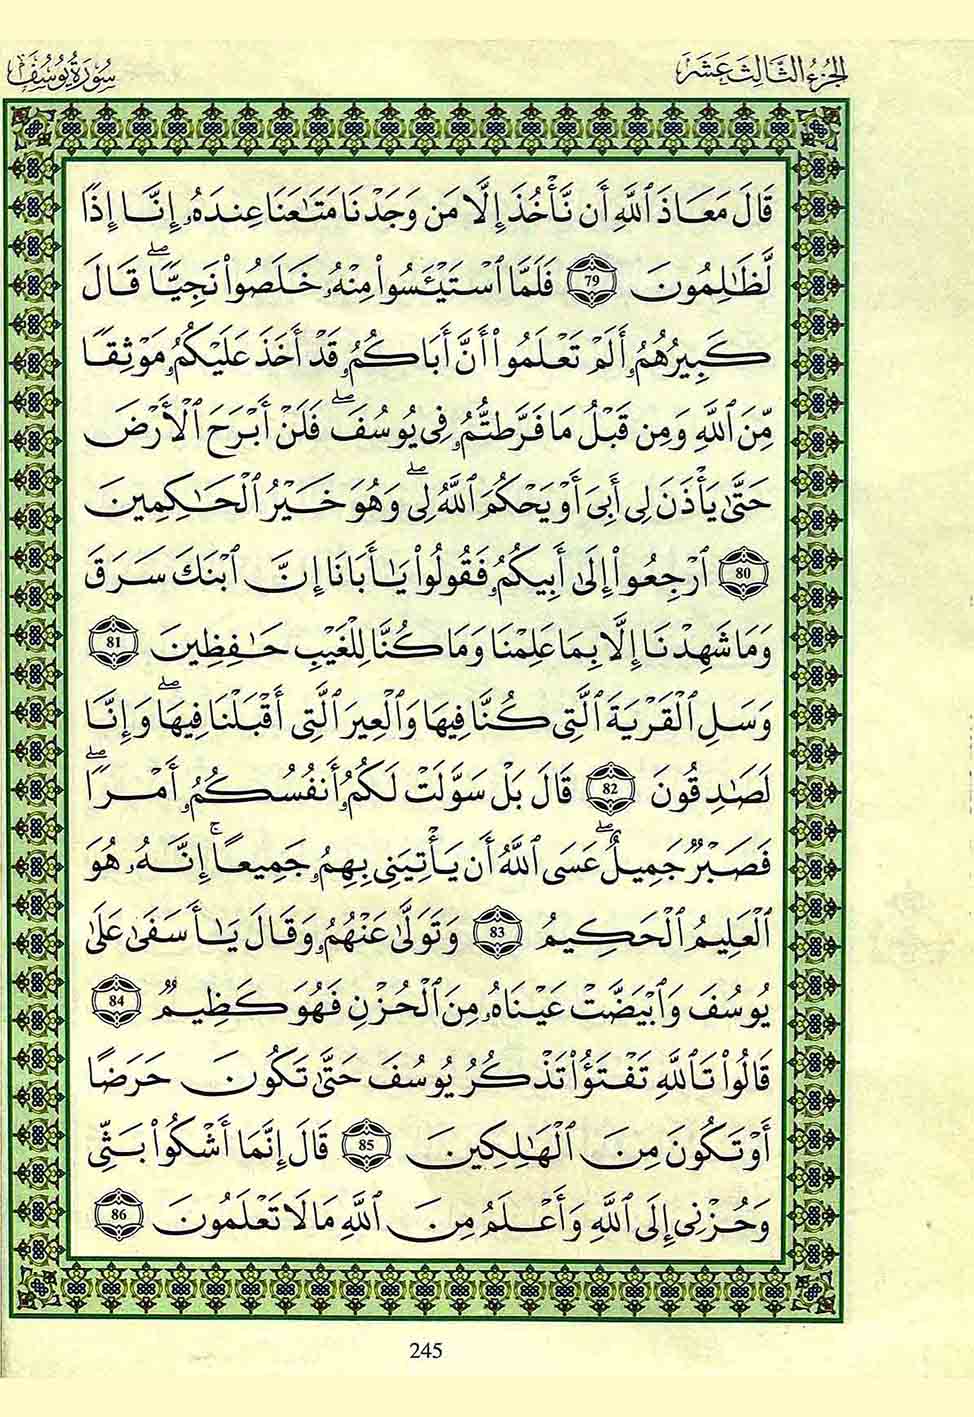 الجزء الثالث عشر
سورة يوسف
قَالَ مَعَاذَ ٱللَّهِ أَن نَّأْخُذَ إِلَّا مَن وَجَدْنَا مَتَـٰعَنَا عِندَهُۥ إِنَّا إِذًا
لَّظَـٰلِمُونَ 79 فَلَمَّا ٱسْتَيْـَٔسُوا۟ مِنْهُۥ خَلَصُوا۟ نَجِيًّاۖ قَالَ
كَبِيرُهُمُۥ أَلَمْ تَعْلَمُوا۟ أَنَّ أَبَاكُمُۥ قَدْ أَخَذَ عَلَيْكُمُۥ مَوْثِقًا
مِّنَ ٱللَّهِ وَمِن قَبْلُ مَا فَرَّطتُّمُۥ فِى يُوسُفَۖ فَلَنْ أَبْرَحَ ٱلْأَرْضَ
حَتَّىٰ يَأْذَنَ لِى أَبِىَ أَوْ يَحْكُمَ ٱللَّهُ لِىۖ وَهُوَ خَيْرُ ٱلْحَـٰكِمِينَ
80 ٱرْجِعُوا۟ إِلَىٰ أَبِيكُمُۥ فَقُولُوا۟ يَـٰأَبَانَا إِنَّ ٱبْنَكَ سَرَقَ
وَمَا شَهِدْنَا إِلَّا بِمَا عَلِمْنَا وَمَا كُنَّا لِلْغَيْبِ حَـٰفِظِينَ 81
وَسَلِ ٱلْقَرْيَةَ ٱلَّتِى كُنَّا فِيهَا وَٱلْعِيرَ ٱلَّتِى أَقْبَلْنَا فِيهَاۖ وَإِنَّا
لَصَـٰدِقُونَ 82 قَالَ بَلْ سَوَّلَتْ لَكُمُۥ أَنفُسُكُمُۥ أَمْرًاۖ
فَصَبْرٌ جَمِيلٌۖ عَسَى ٱللَّهُ أَن يَأْتِيَنِى بِهِمُۥ جَمِيعًاۚ إِنَّهُۥ هُوَ
ٱلْعَلِيمُ ٱلْحَكِيمُ 83 وَتَوَلَّىٰ عَنْهُمُۥ وَقَالَ يَـٰأَسَفَىٰ عَلَىٰ
يُوسُفَ وَٱبْيَضَّتْ عَيْنَاهُۥ مِنَ ٱلْحُزْنِ فَهُوَ كَظِيمٌ 84
قَالُوا۟ تَٱللَّهِ تَفْتَؤُا۟ تَذْكُرُ يُوسُفَ حَتَّىٰ تَكُونَ حَرَضًا
أَوْ تَكُونَ مِنَ ٱلْهَـٰلِكِينَ 85 قَالَ إِنَّمَا أَشْكُوا۟ بَثِّى
وَحُزْنِى إِلَى ٱللَّهِ وَأَعْلَمُ مِنَ ٱللَّهِ مَا لَا تَعْلَمُونَ 86
245